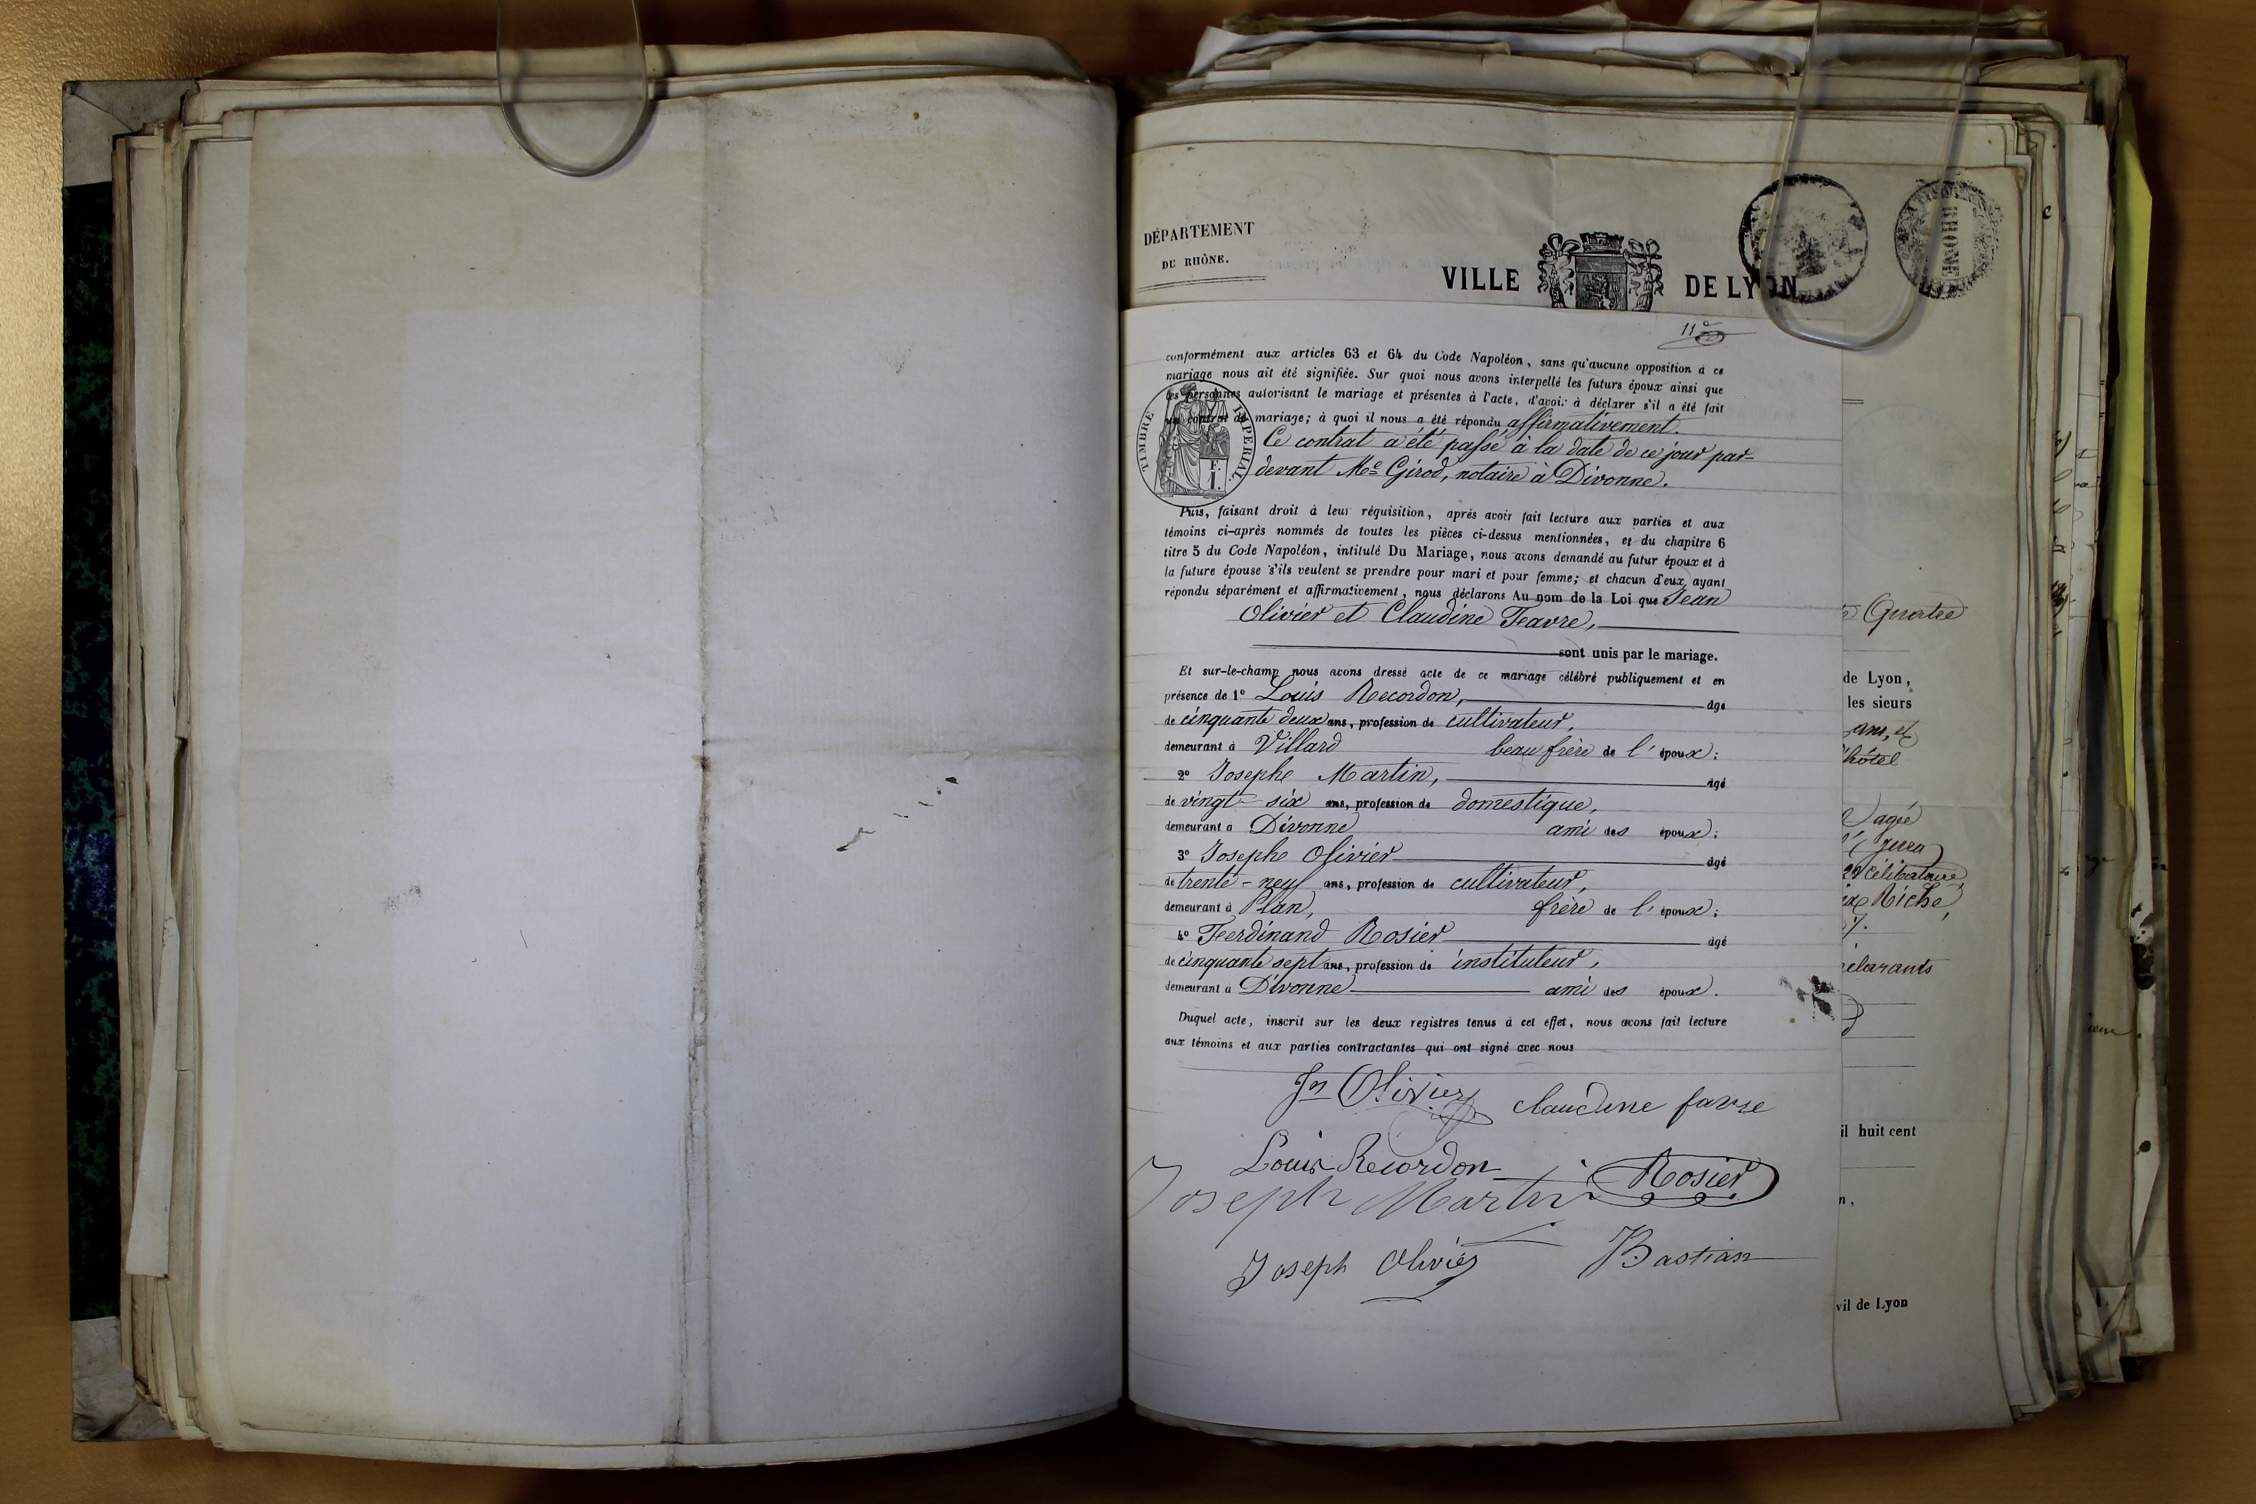 DÉPARTEMENT
DU RHÔNE.
VILLE DE LYON
RHONE
11e
conformément aux articles 63 et 64 du Code Napoléon, sans qu'aucune opposition à ce
mariage nous ait été signifiée. Sur quoi nous avons interpellé les futurs époux ainsi que
les personnes autorisant le mariage et présentes à l'acte, d'avoir à déclarer s'il a été fait
un contrat de mariage; à quoi il nous a été répondu affirmativement.
Ce contrat a été passé à la date de ce jour par=
devant Me Girod, notaire à Divonne.
TIMBRE IMPERIAL.
F.
1.
Puis, faisant droit à leur réquisition, après avoir fait lecture aux parties et aux
témoins ci-après nommés de toutes les pièces ci-dessus mentionnées, et du chapitre 6
titre 5 du Code Napoléon, intitulé Du Mariage, nous avons demandé au futur époux et à
la future épouse s'ils veulent se prendre pour mari et pour femme; et chacun d'eux ayant
répondu séparément et affirmativement, nous déclarons Au nom de la Loi que Jean
Olivier et Claudine Feavre,
sont unis par le mariage.
Et sur-le-champ nous avons dressé acte de ce mariage célébré publiquement et en
présence de 1° Louis Recordon, âgé
de cinquante deux ans, profession de cultivateur,
demeurant à Villard beau frère de l'époux;
2° Josephe Martin, âgé
de vingt-six ans, profession de domestique,
demeurant à Divonne ami des époux;
3° Josephe Olivier âgé
de trente-neuf ans, profession de cultivateur,
demeurant à Plan, frère de l'époux;
4° Ferdinand Rosier âgé
de cinquante sept ans, profession de instituteur,
demeurant à Divonne ami des époux.
Duquel acte, inscrit sur les deux registres tenus à cet effet, nous avons fait lecture
aux témoins et aux parties contractantes qui ont signé avec nous
Jn Olivier claudine favre
Louis Recordon Rosier
Joseph Martin
Joseph Olivier Bastian
Quatre
de Lyon,
les sieurs
ans, et
hôtel
agé
Jura
célibataire
Riché,
déclarants
il huit cent
n,
vil de Lyon